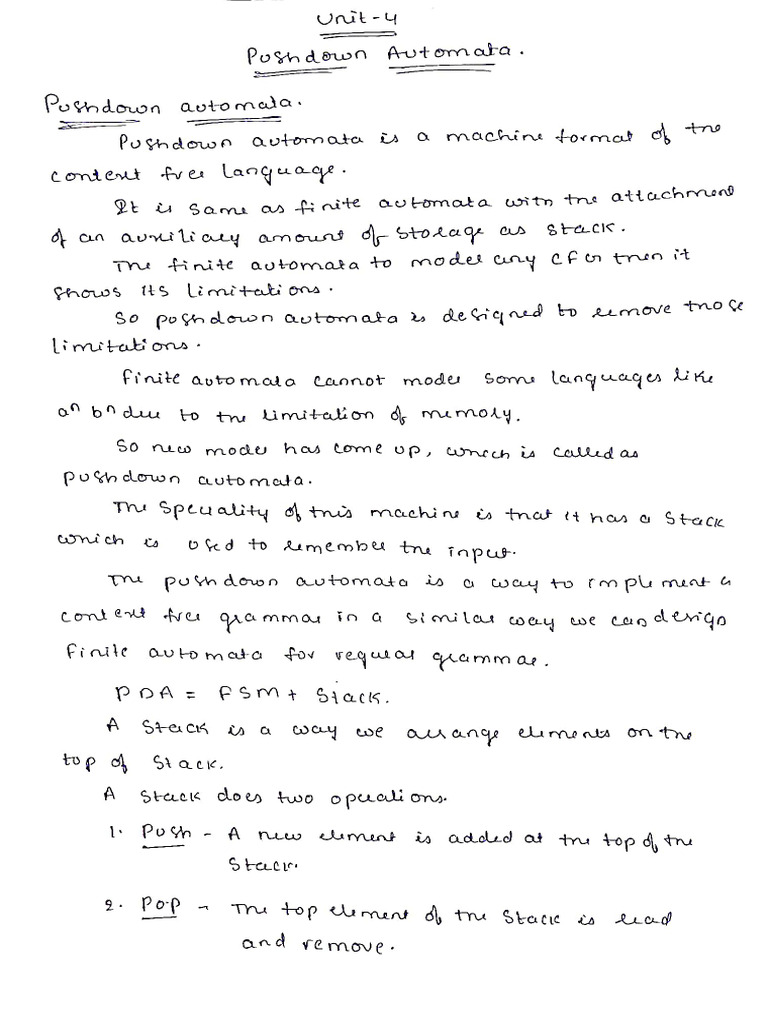 Unit-4
Pushdown Automata.
Pushdown automata.
Pushdown automata is a machine format of the
context free language.
It is same as finite automata with the attachment
of an auxiliary amount of storage as stack.
The finite automata to model any CFG then it
shows its limitations.
So pushdown automata is designed to remove those
limitations.
Finite automata cannot model some languages like
aⁿ bⁿ due to the limitation of memory.
So new model has come up, which is called as
pushdown automata.
The speciality of this machine is that it has a stack
which is used to remember the input.
The pushdown automata is a way to implement a
context free grammar in a similar way we can design
finite automata for regular grammar.
PDA = FSM + Stack.
A stack is a way we arrange elements on the
top of stack.
A stack does two operations.
1. Push - A new element is added at the top of the
stack.
2. Pop - The top element of the stack is read
and remove.